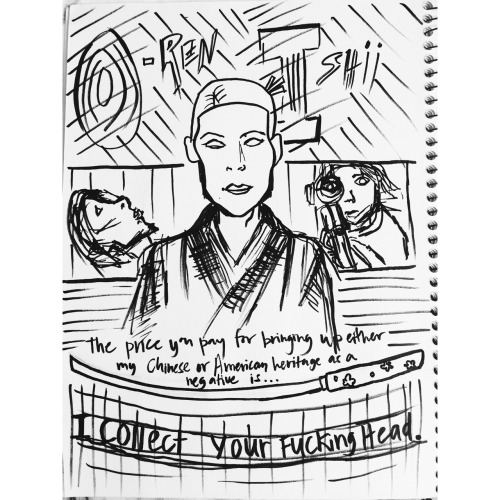 O-REN IShii
The price you pay for bringing up either
my Chinese or American heritage as a
negative is...
I collect your fucking Head.